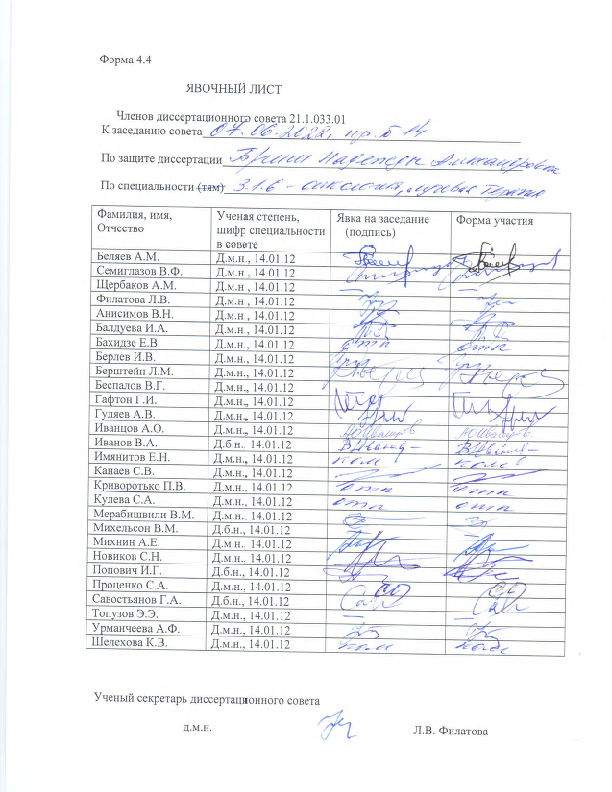 Форма 4.4
ЯВОЧНЫЙ ЛИСТ
Членов диссертационного совета 21.1.033.01
К заседанию совета 07.06.2022, пр. № 14
По защите диссертации Бриш Надежды Александровны
По специальности (там) 3.1.6 – онкология, лучевая терапия
Фамилия, имя, Отчество Ученая степень, шифр специальности в совете Явка на заседание (подпись) Форма участия
Беляев А.М. Д.м.н., 14.01.12
Семиглазов В.Ф. Д.м.н., 14.01.12
Щербаков А.М. Д.м.н., 14.01.12 — —
Филатова Л.В. Д.м.н., 14.01.12
Анисимов В.Н. Д.м.н., 14.01.12
Балдуева И.А. Д.м.н., 14.01.12
Бахидзе Е.В Д.м.н., 14.01.12 отп отп
Берлев И.В. Д.м.н., 14.01.12
Берштейн Л.М. Д.м.н., 14.01.12
Беспалов В.Г. Д.м.н., 14.01.12
Гафтон Г.И. Д.м.н., 14.01.12
Гуляев А.В. Д.м.н., 14.01.12
Иванцов А.О. Д.м.н., 14.01.12
Иванов В.А. Д.б.н., 14.01.12
Имянитов Е.Н. Д.м.н., 14.01.12 ком ком
Канаев С.В. Д.м.н., 14.01.12
Криворотько П.В. Д.м.н., 14.01.12 отп отп
Кулева С.А. Д.м.н., 14.01.12 отп отп
Мерабишвили В.М. Д.м.н., 14.01.12
Михельсон В.М. Д.б.н., 14.01.12 — —
Михнин А.Е. Д.м.н. 14.01.12
Новиков С.Н. Д.м.н., 14.01.12
Попович И.Г. Д.б.н., 14.01.12
Проценко С.А. Д.м.н., 14.01.12
Савостьянов Г.А. Д.б.н., 14.01.12
Тоцузов Э.Э. Д.м.н., 14.01.12 — —
Урманчеева А.Ф. Д.м.н., 14.01.12
Шелехова К.З. Д.м.н., 14.01.12 ком ком
Ученый секретарь диссертационного совета
д.м.н. Л.В. Филатова